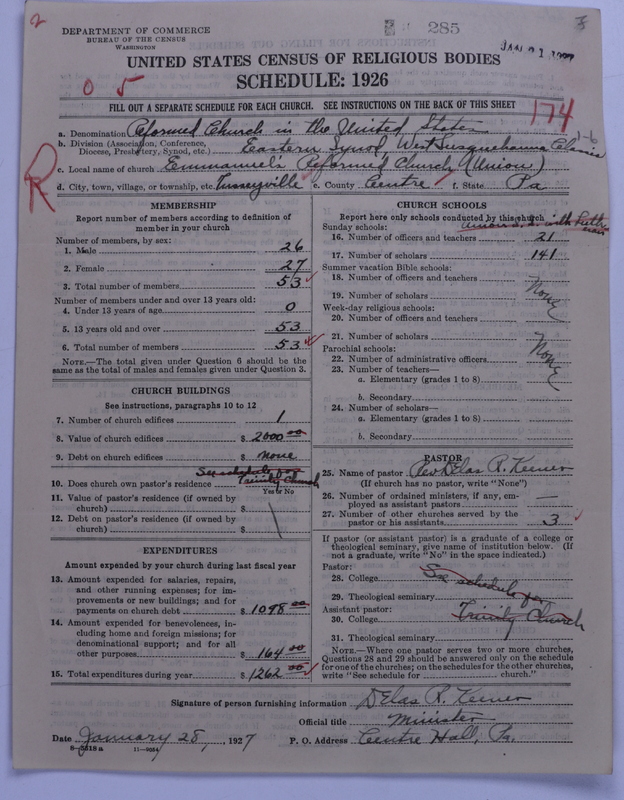 2
DEPARTMENT OF COMMERCE
BUREAU OF THE CENSUS
WASHINGTON
285
JAN 31 1927
UNITED STATES CENSUS OF RELIGIOUS BODIES
SCHEDULE: 1926
0 5
FILL OUT A SEPARATE SCHEDULE FOR EACH CHURCH. SEE INSTRUCTIONS ON THE BACK OF THIS SHEET
174
a. Denomination Reformed Church in the United States
b. Division (Association, Conference, Diocese, Presbytery, Synod, etc.) Eastern Synod West Susquehanna Classis
c. Local name of church Emmanuel's Reformed Church (Union)
R
d. City, town, village, or township, etc. Tusseyville e. County Centre f. State Pa
MEMBERSHIP
Report number of members according to definition of member in your church
Number of members, by sex:
1. Male 26
2. Female 27
3. Total number of members 53
Number of members under and over 13 years old:
4. Under 13 years of age 0
5. 13 years old and over 53
6. Total number of members 53
NOTE.—The total given under Question 6 should be the same as the total of males and females given under Question 3.
CHURCH BUILDINGS
See instructions, paragraphs 10 to 12
7. Number of church edifices 1
8. Value of church edifices $ 2000 00
9. Debt on church edifices $ none
See schedule for
10. Does church own pastor's residence Trinity Church
Yes or No
11. Value of pastor's residence (if owned by church) $
12. Debt on pastor's residence (if owned by church) $
EXPENDITURES
Amount expended by your church during last fiscal year
13. Amount expended for salaries, repairs, and other running expenses; for improvements or new buildings; and for payments on church debt $ 1098 00
14. Amount expended for benevolences, including home and foreign missions; for denominational support; and for all other purposes $ 164 00
15. Total expenditures during year $ 1262 00
CHURCH SCHOOLS
Report here only schools conducted by this church
Sunday schools: Union S. S. with Lutheran
16. Number of officers and teachers 21
17. Number of scholars 141
Summer vacation Bible schools:
18. Number of officers and teachers
19. Number of scholars None
Week-day religious schools:
20. Number of officers and teachers
21. Number of scholars None
Parochial schools:
22. Number of administrative officers
23. Number of teachers—
a. Elementary (grades 1 to 8)
b. Secondary
24. Number of scholars—
a. Elementary (grades 1 to 8)
b. Secondary
PASTOR
25. Name of pastor Rev Delas R. Keener
(If church has no pastor, write "None")
26. Number of ordained ministers, if any, employed as assistant pastors —
27. Number of other churches served by the pastor or his assistants 3
If pastor (or assistant pastor) is a graduate of a college or theological seminary, give name of institution below. (If not a graduate, write "No" in the space indicated.)
Pastor:
28. College See schedule for
29. Theological seminary
Assistant pastor: Trinity Church
30. College
31. Theological seminary
NOTE.—Where one pastor serves two or more churches, Questions 28 and 29 should be answered only on the schedule for one of the churches; on the schedules for the other churches, write "See schedule for church."
Signature of person furnishing information Delas R. Keener
Official title Minister
Date January 28, 1927 P. O. Address Centre Hall, Pa.
8-5318a 11-9084